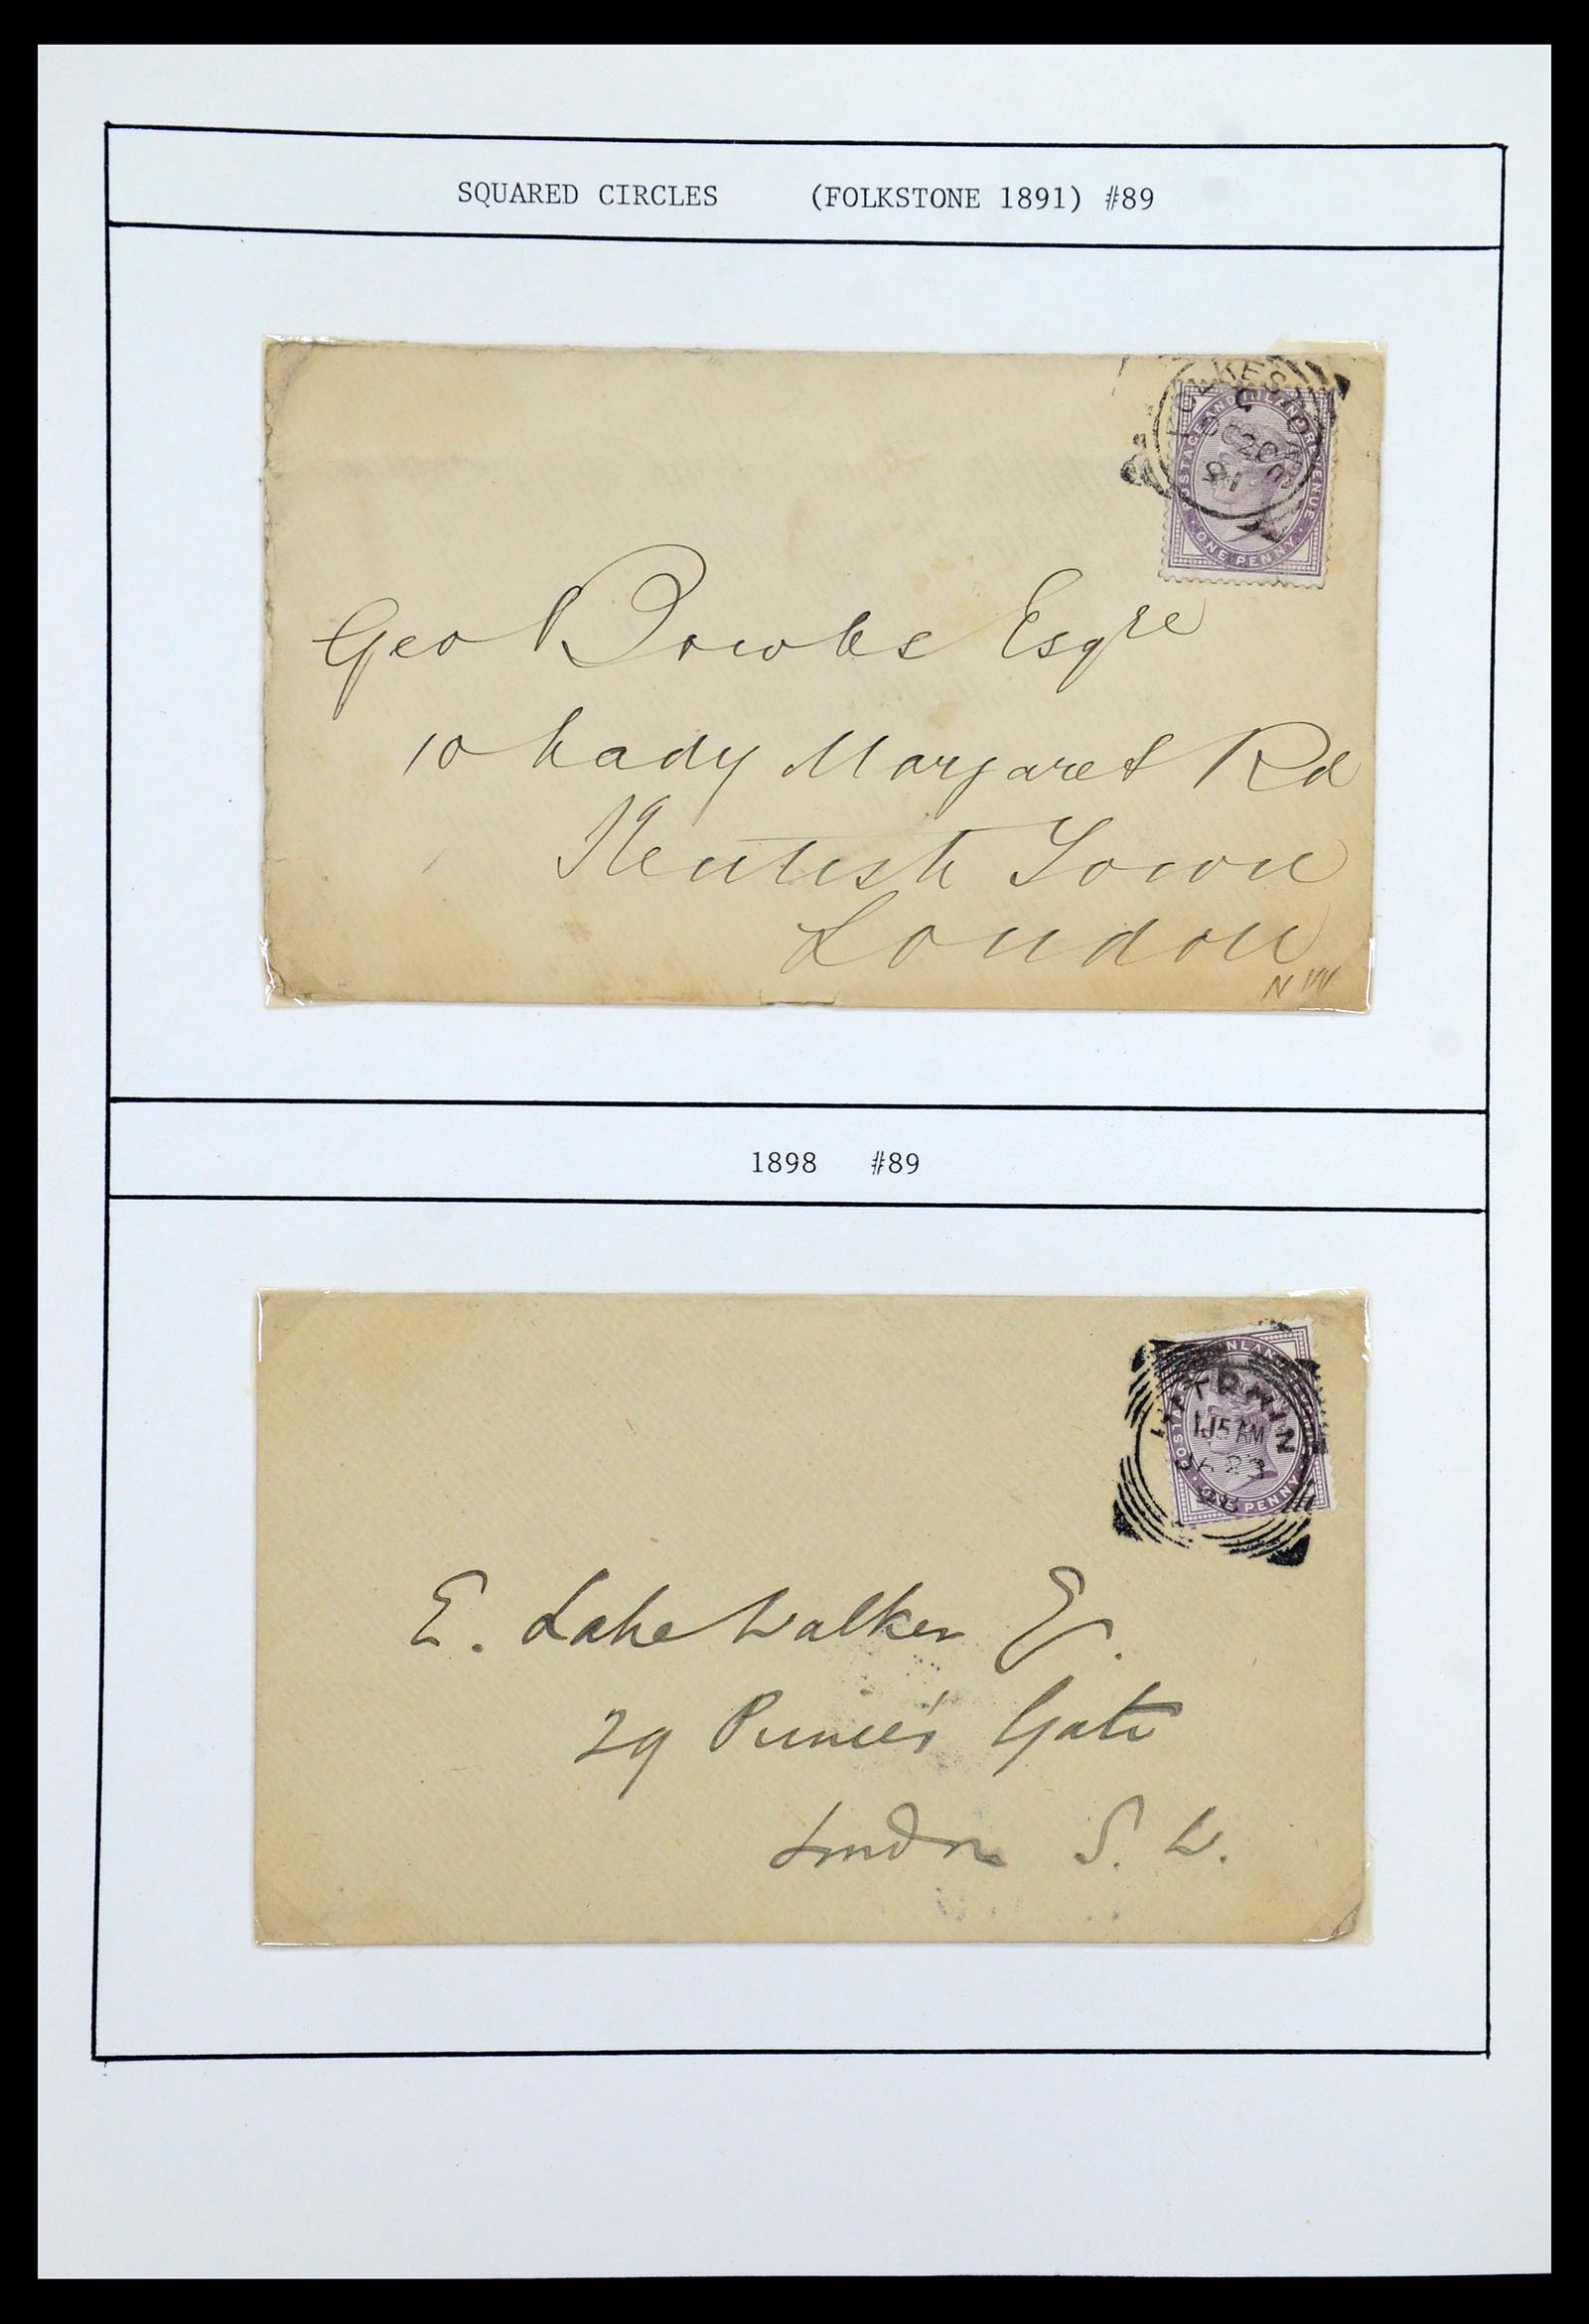 SQUARED CIRCLES (FOLKSTONE 1891) #89
FOLKESTONE
C
20
91
POSTAGE AND INLAND REVENUE
ONE PENNY
Geo Bowles Esqre
10 Lady Margaret Rd
Kentish Town
London
NW
1898 #89
HITCHIN
1.15 AM
98
INLAND
ONE PENNY
E. Lake Walker
29 Prince's Gate
London S. W.